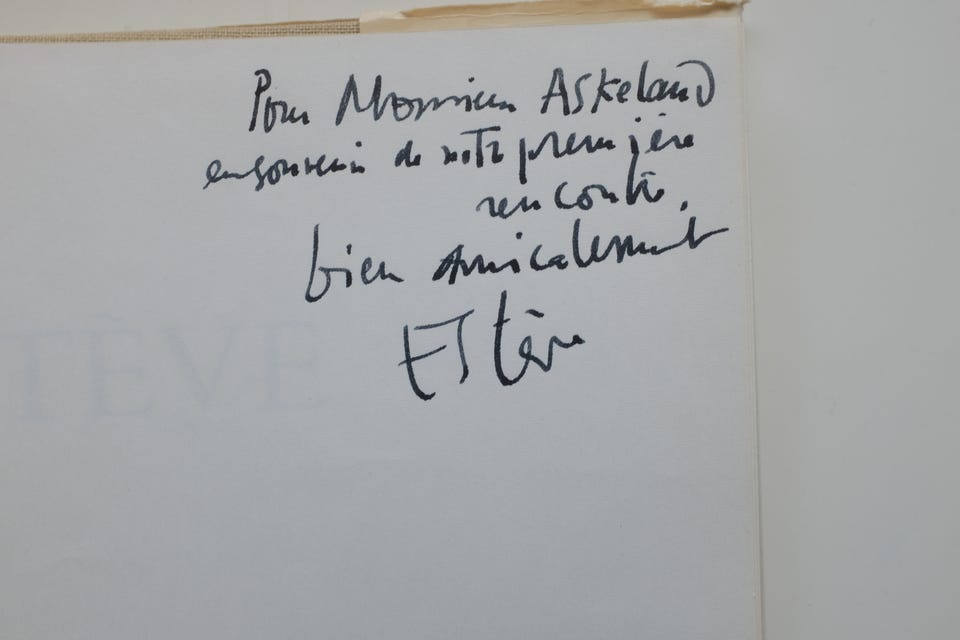 Pour Monsieur Askeland
en souvenir de notre première
rencontre.
bien amicalement
Estève
TÈVE